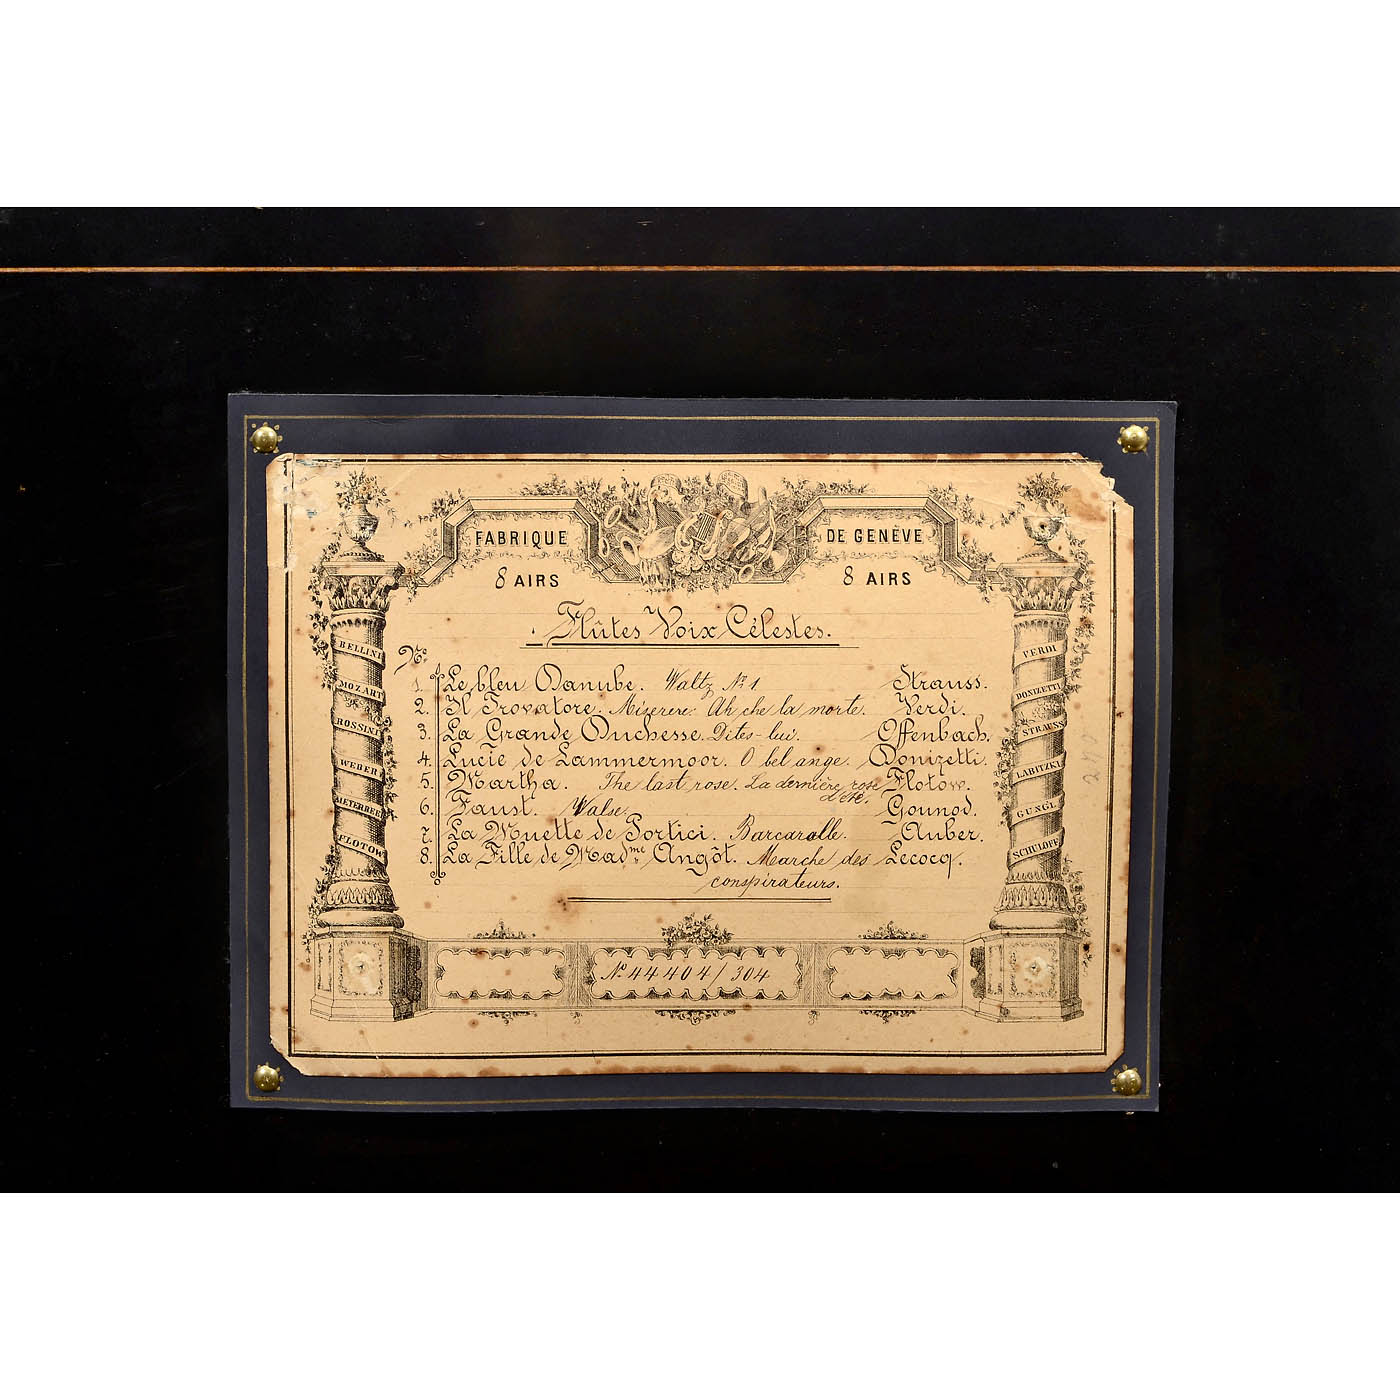 FABRIQUE DE GENÈVE
8 AIRS 8 AIRS
Flûtes Voix Célestes.
Nos
1. Le bleu Danube. Waltz No 1 Strauss.
2. Il Trovatore. Miserere. Ah che la morte. Verdi.
3. La Grande Duchesse. Dites-lui. Offenbach.
4. Lucie de Lammermoor. O bel ange. Donizetti.
5. Martha. The last rose. La dernière rose Flotow.
d'été.
6. Faust. Valse. Gounod.
7. La Muette de Portici. Barcarolle. Auber.
8. La Fille de Madme Angôt. Marche des Lecocq.
conspirateurs.
No 44404/304
BELLINI
MOZART
ROSSINI
WEBER
MEYERBEER
FLOTOW
VERDI
DONIZETTI
STRAUSS
LABITZKI
GUNGL
SCHULOFF